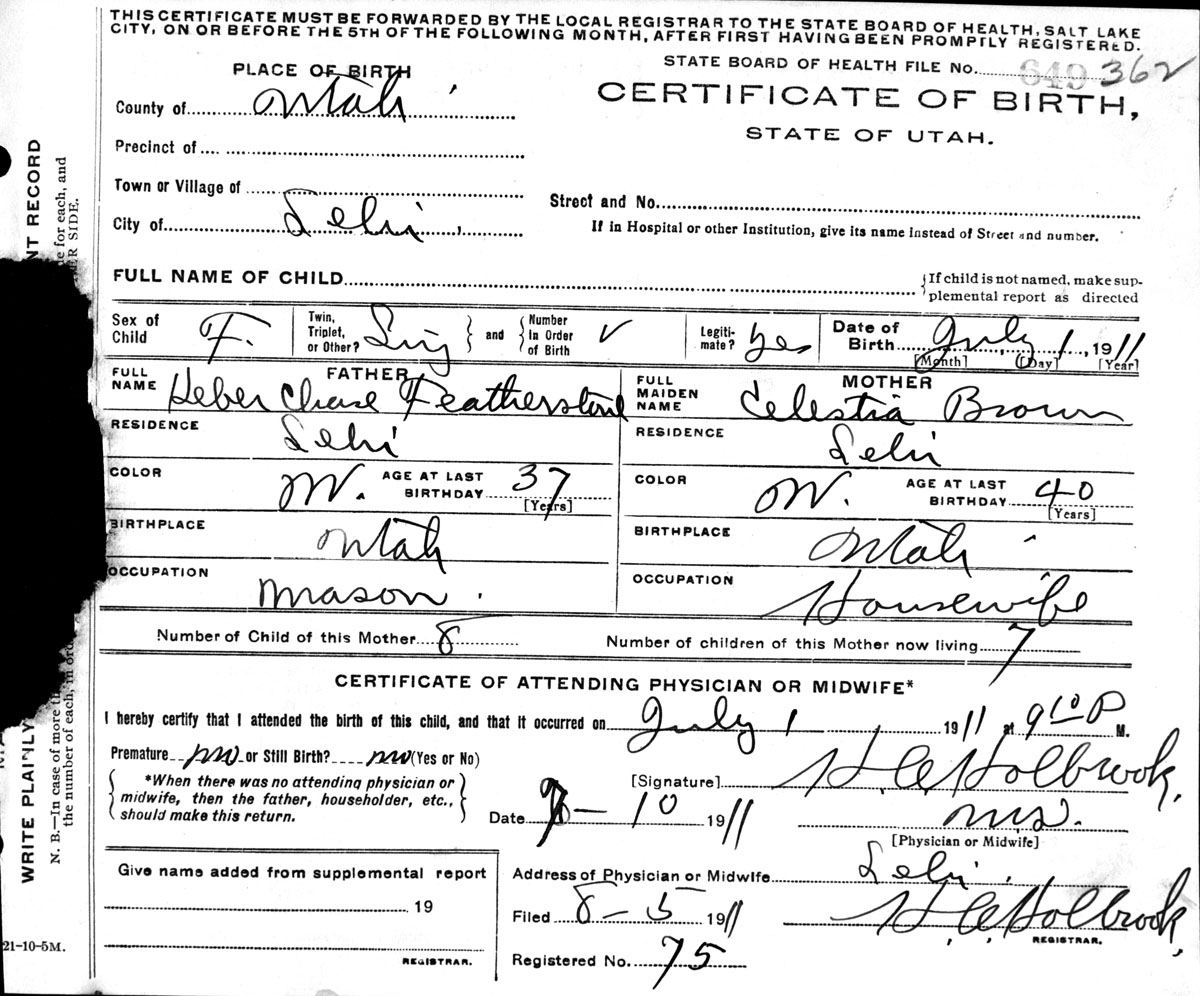 THIS CERTIFICATE MUST BE FORWARDED BY THE LOCAL REGISTRAR TO THE STATE BOARD OF HEALTH, SALT LAKE
CITY, ON OR BEFORE THE 5TH OF THE FOLLOWING MONTH, AFTER FIRST HAVING BEEN PROMPTLY REGISTERED.
STATE BOARD OF HEALTH FILE No. 649 362
PLACE OF BIRTH
CERTIFICATE OF BIRTH,
STATE OF UTAH.
County of Utah
Precinct of
Town or Village of
Street and No.
City of Lehi
If in Hospital or other Institution, give its name instead of Street and number.
FULL NAME OF CHILD
{If child is not named, make sup-
plemental report as directed
Sex of Child F.
Twin, Triplet, or Other? Sing
and
Number In Order of Birth ✓
Legiti-mate? yes
Date of Birth July 1, 1911
[Month] [Day] [Year]
FATHER
FULL NAME Heber Chase Featherstone
MOTHER
FULL MAIDEN NAME Celestia Brown
RESIDENCE Lehi
RESIDENCE Lehi
COLOR W. AGE AT LAST BIRTHDAY 37 [Years]
COLOR W. AGE AT LAST BIRTHDAY 40 [Years]
BIRTHPLACE Utah
BIRTHPLACE Utah
OCCUPATION Mason.
OCCUPATION Housewife
Number of Child of this Mother 8
Number of children of this Mother now living 7
CERTIFICATE OF ATTENDING PHYSICIAN OR MIDWIFE*
I hereby certify that I attended the birth of this child, and that it occurred on July 1 1911 at 9 10 P M.
Premature no or Still Birth? no (Yes or No)
*When there was no attending physician or
midwife, then the father, householder, etc.,
should make this return.
[Signature] H. C. Holbrook,
Date 10 1911
M.D.
[Physician or Midwife]
Give name added from supplemental report
19
REGISTRAR.
Address of Physician or Midwife Lehi.
Filed 8-5 1911
H. C. Holbrook,
REGISTRAR.
Registered No. 75
21-10-5M.
WRITE PLAINLY
NT RECORD
N. B.—In case of more
for each, and
the number of each,
SIDE.